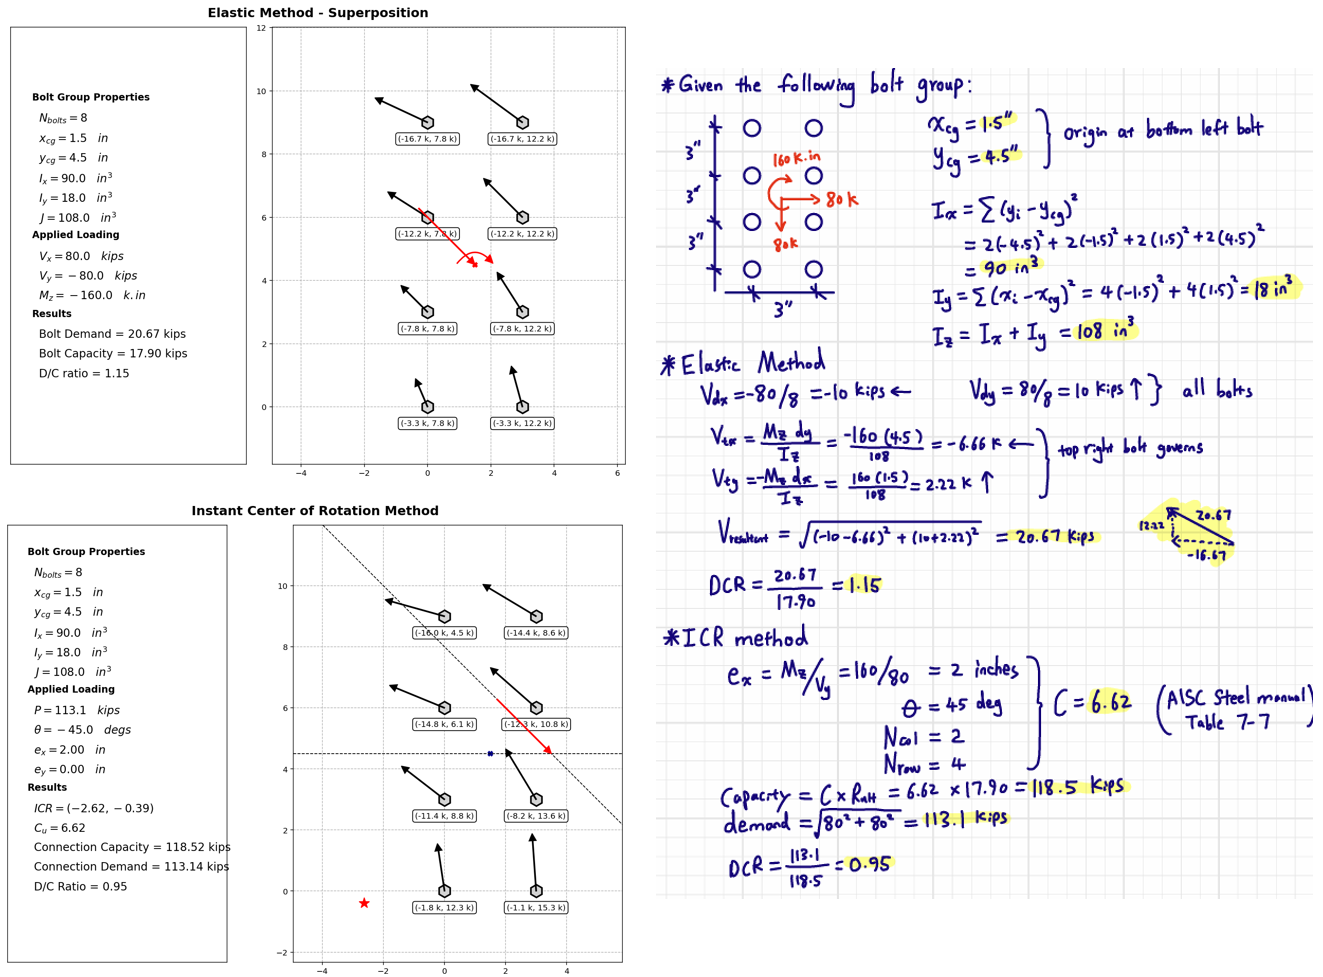 Elastic Method - Superposition
Bolt Group Properties
N_bolts = 8
x_cg = 1.5 in
y_cg = 4.5 in
I_x = 90.0 in³
I_y = 18.0 in³
J = 108.0 in³
Applied Loading
V_x = 80.0 kips
V_y = −80.0 kips
M_z = −160.0 k.in
Results
Bolt Demand = 20.67 kips
Bolt Capacity = 17.90 kips
D/C ratio = 1.15
12
10
8
6
4
2
0
−4 −2 0 2 4 6
(-16.7 k, 7.8 k) (-16.7 k, 12.2 k)
(-12.2 k, 7.8 k) (-12.2 k, 12.2 k)
(-7.8 k, 7.8 k) (-7.8 k, 12.2 k)
(-3.3 k, 7.8 k) (-3.3 k, 12.2 k)
Instant Center of Rotation Method
Bolt Group Properties
N_bolts = 8
x_cg = 1.5 in
y_cg = 4.5 in
I_x = 90.0 in³
I_y = 18.0 in³
J = 108.0 in³
Applied Loading
P = 113.1 kips
θ = −45.0 degs
e_x = 2.00 in
e_y = 0.00 in
Results
ICR = (−2.62, −0.39)
C_u = 6.62
Connection Capacity = 118.52 kips
Connection Demand = 113.14 kips
D/C Ratio = 0.95
10
8
6
4
2
0
−2
−4 −2 0 2 4
(-16.0 k, 4.5 k) (-14.4 k, 8.6 k)
(-14.8 k, 6.1 k) (-12.3 k, 10.8 k)
(-11.4 k, 8.8 k) (-8.2 k, 13.6 k)
(-1.8 k, 12.3 k) (-1.1 k, 15.3 k)
* Given the following bolt group:
3"
3"
3"
3"
160 k.in
80 k
80k
x_cg = 1.5"
y_cg = 4.5"
origin at bottom left bolt
I_x = Σ(y_i - y_cg)²
= 2(-4.5)² + 2(-1.5)² + 2(1.5)² + 2(4.5)²
= 90 in³
I_y = Σ(x_i - x_cg)² = 4(-1.5)² + 4(1.5)² = 18 in³
I_z = I_x + I_y = 108 in³
* Elastic Method
V_dx = -80/8 = -10 kips ← V_dy = 80/8 = 10 kips ↑ } all bolts
V_tx = M_z dy / I_z = -160 (4.5) / 108 = -6.66 k ←
V_ty = -M_z dx / I_z = 160 (1.5) / 108 = 2.22 k ↑
top right bolt governs
V_resultant = √((-10 - 6.66)² + (10 + 2.22)²) = 20.67 kips
12.22
20.67
-16.67
DCR = 20.67 / 17.90 = 1.15
* ICR method
e_x = M_z/V_y = 160/80 = 2 inches
θ = 45 deg
N_col = 2
N_row = 4
C = 6.62 (AISC Steel manual
Table 7-7)
Capacity = C × R_ult = 6.62 × 17.90 = 118.5 kips
demand = √(80² + 80²) = 113.1 kips
DCR = 113.1 / 118.5 = 0.95